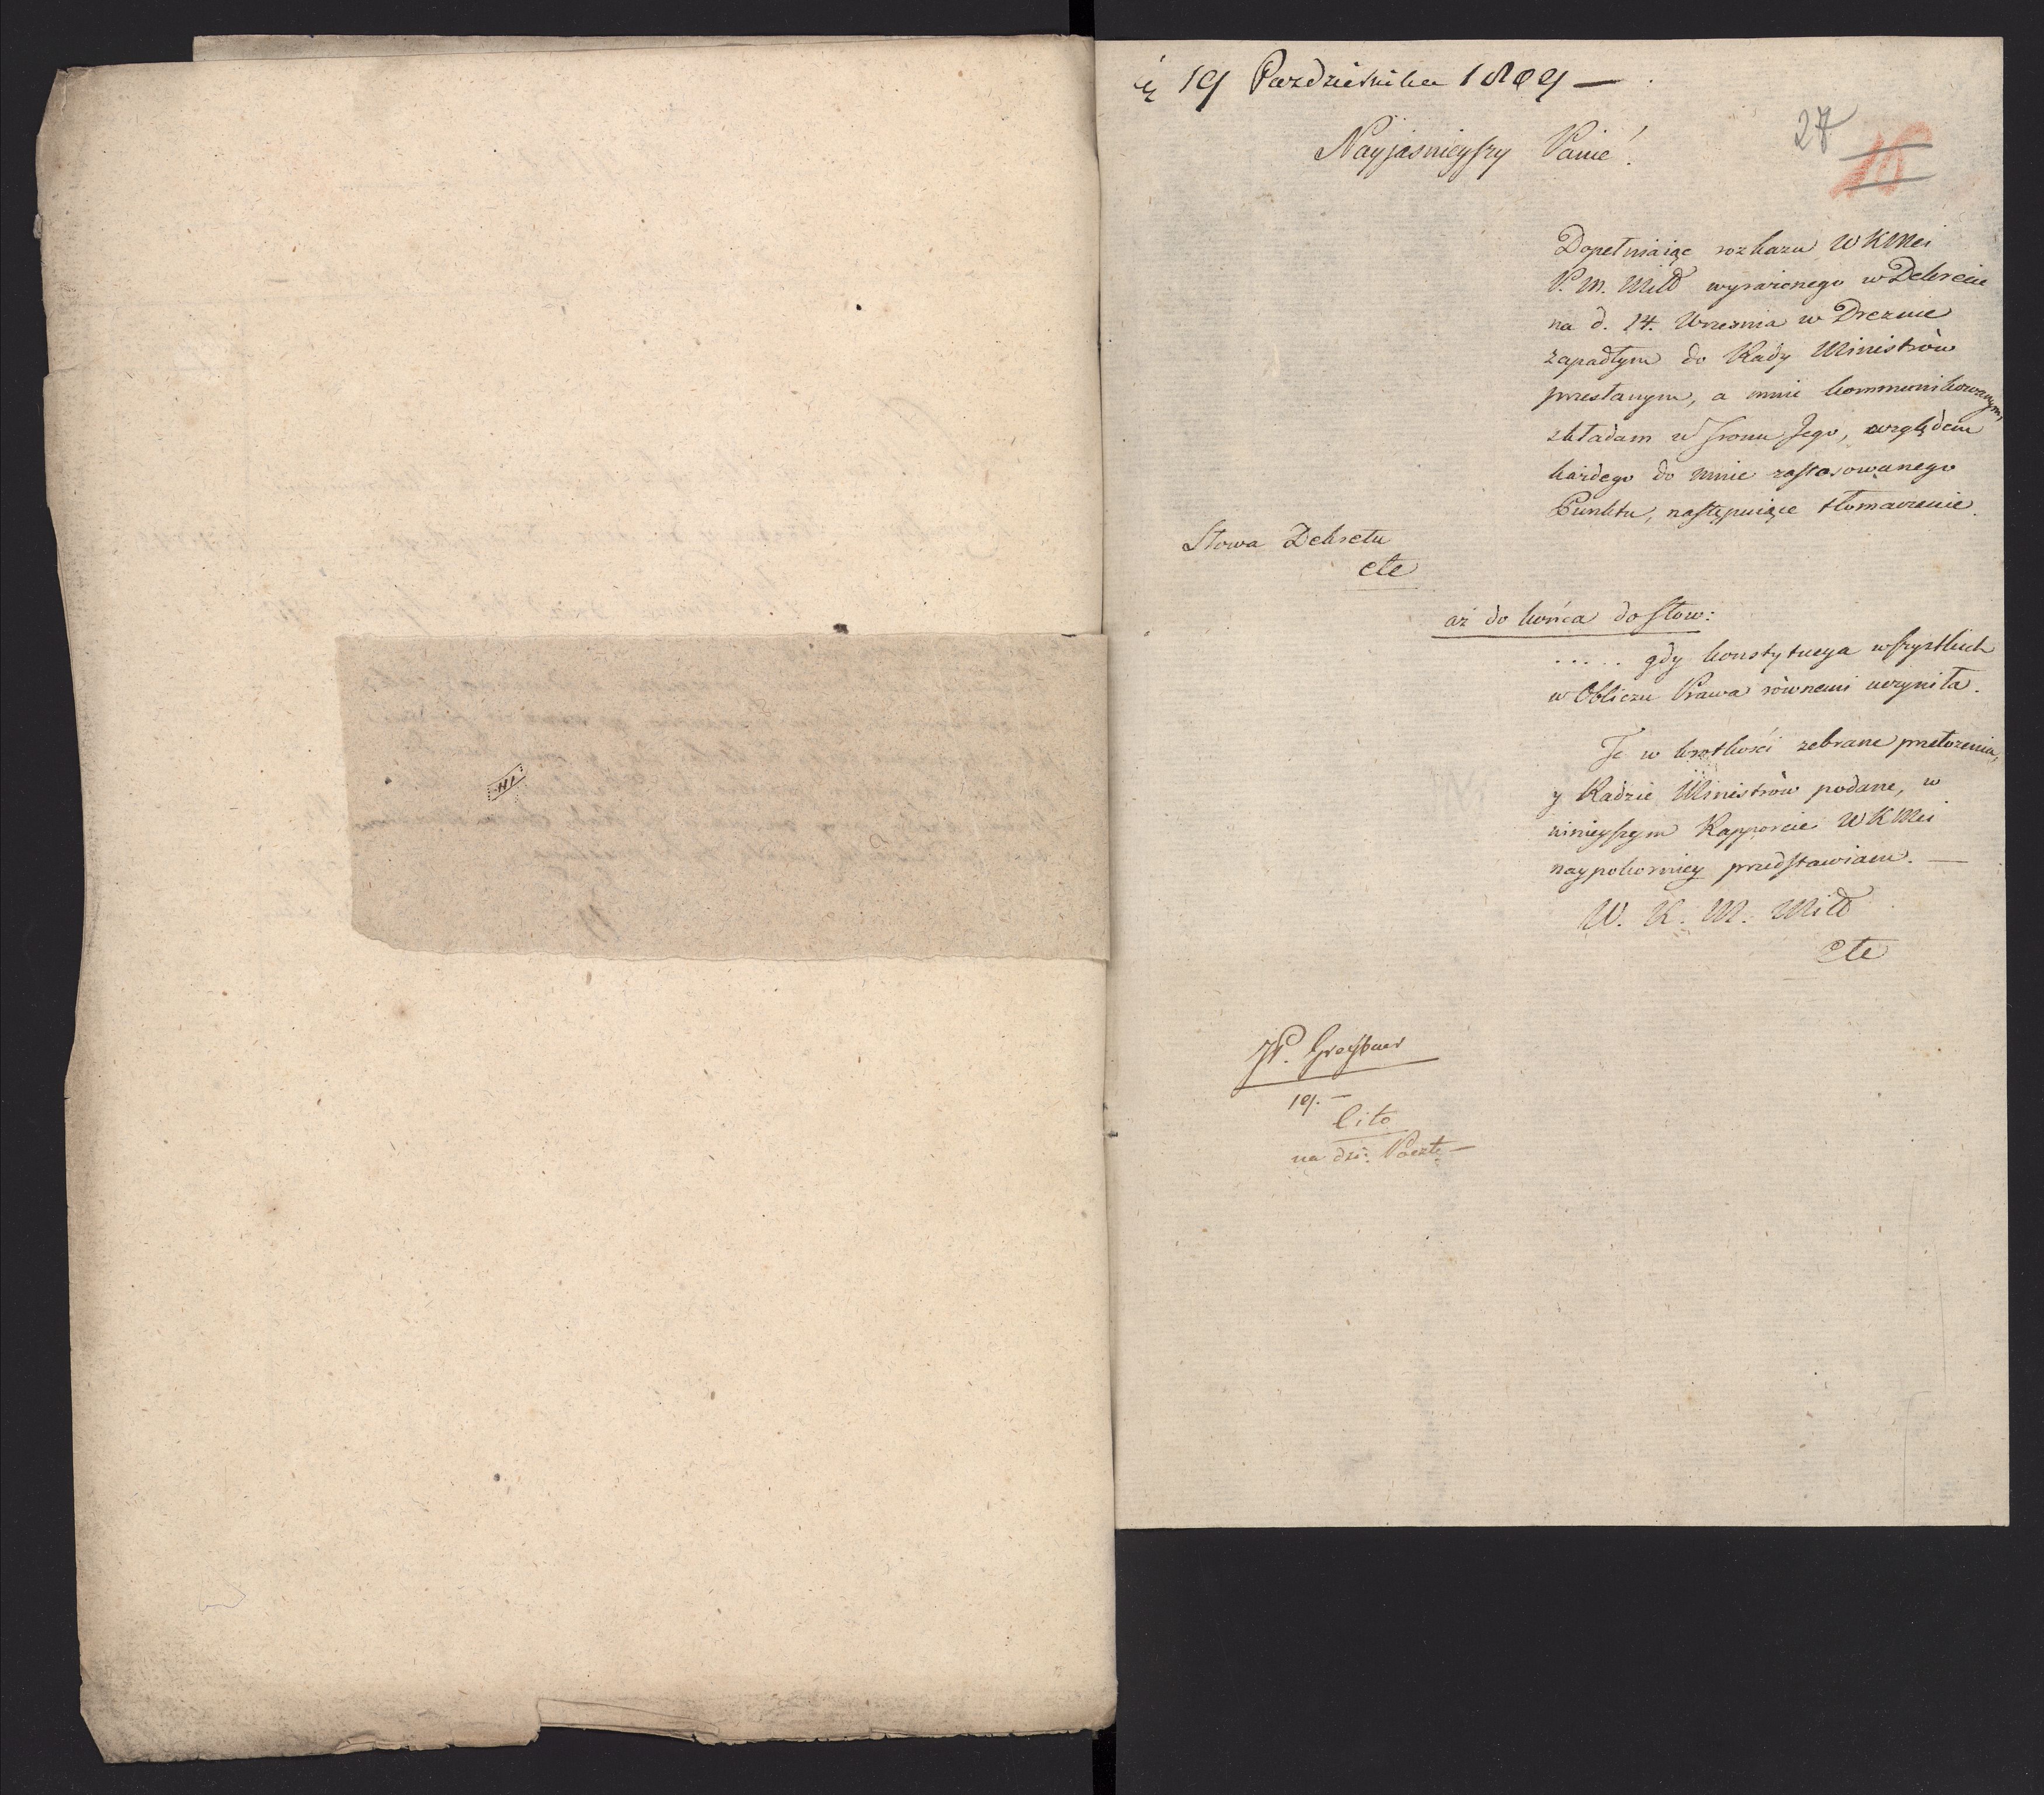 19 Pazdziernika 1809 —
27
16
Nayjasnieyszy Panie!
Dopełniaiąc rozkazu WKMci
P. M. Miłł wyrażonego w Dekrecie
na d. 14. Wrzesnia w Dreznie
zapadłym do Rady Ministrów
przesłanym, a mnie kommunikowanym,
składam w Jego, względem
każdego do mnie zastosowanego
Punktu, następuiące tłomaczenie.
Słowa Dekretu
etc
aż do końca do słow:
..... gdy konstytucya wszystkich
w Obliczu Prawa równemi uczyniła.
Te w krotkości zebrane przełożenia,
y Radzie Ministrów podane, w
ninieyszym Rapporcie WKMci
naypokorniey przedstawiam. —
W. K. M. Miłł
etc
JP.
19. —
Cito
na dzi: Pocztę —